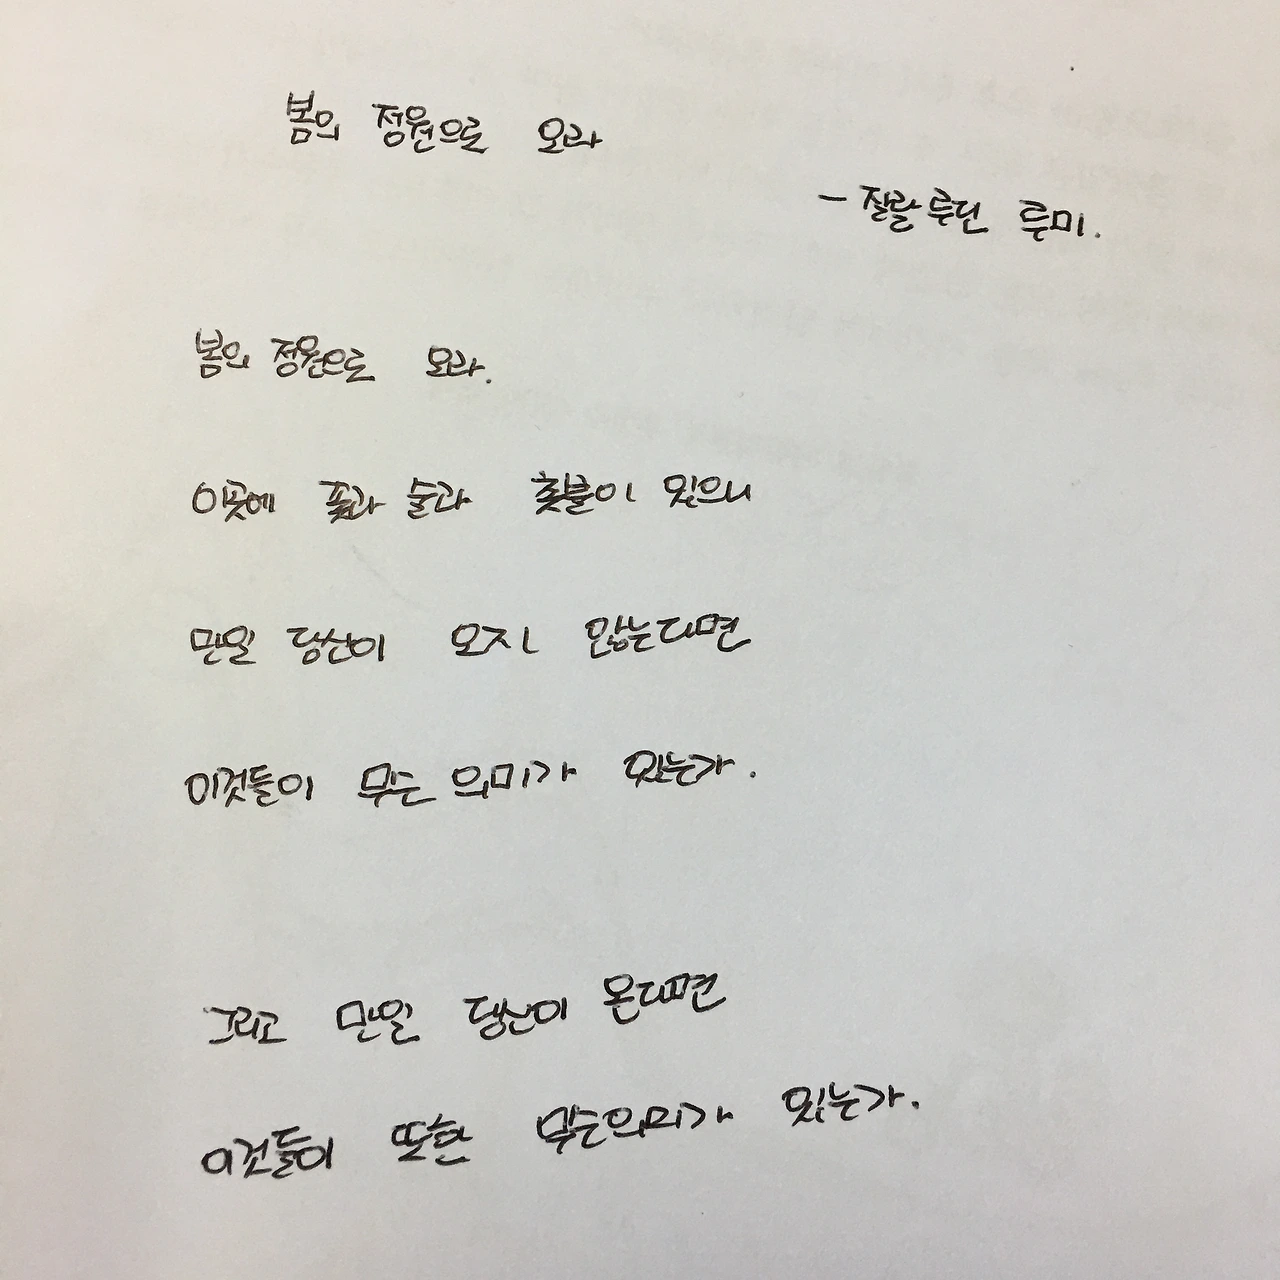 봄의 정원으로 오라
- 잘랄루딘 루미.
봄의 정원으로 오라.
이곳에 꽃과 술과 촛불이 있으니
만일 당신이 오지 않는다면
이것들이 무슨 의미가 있는가.
그리고 만일 당신이 온다면
이것들이 또한 무슨의미가 있는가.